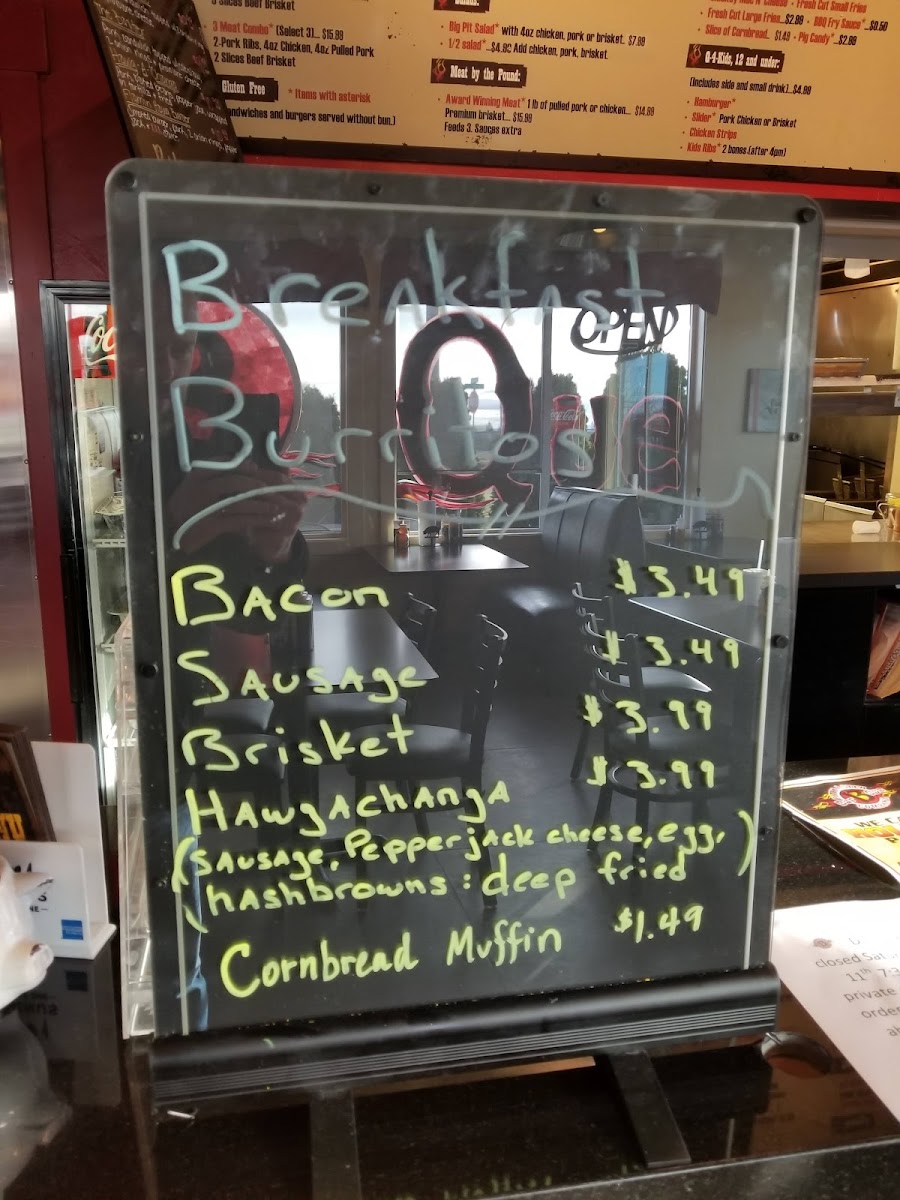 3 Meat Combo* (Select 3)... $15.99
2-Pork Ribs, 4oz Chicken, 4oz Pulled Pork
2 Slices Beef Brisket
Gluten Free
* Items with asterisk
(Sandwiches and burgers served without bun.)
Big Pit Salad* with 4oz chicken, pork or brisket. $7.99
1/2 salad* Add chicken, pork, brisket.
Meat by the Pound:
Award Winning Meat* 1 lb of pulled pork or chicken... $14.99
Premium brisket... $15.99
Feeds 3. Sauces extra
Fresh Cut Small Fries
Fresh Cut Large Fries...$2.99 • BBQ Fry Sauce*...$0.50
Slice of Cornbread... $1.49 • Pig Candy*...$2.99
Q-4-Kids, 12 and under:
(Includes side and small drink)...$4.99
• Hamburger*
• Slider* Pork Chicken or Brisket
• Chicken Strips
• Kids Ribs* 2 bones (after 4pm)
Breakfast
Burritos
OPEN
Q
Bacon $3.49
Sausage $3.49
Brisket $3.99
Hawgachanga $3.99
(Sausage, Pepper jack cheese, egg,
hashbrowns: deep fried)
Cornbread Muffin $1.49
closed
11th
private